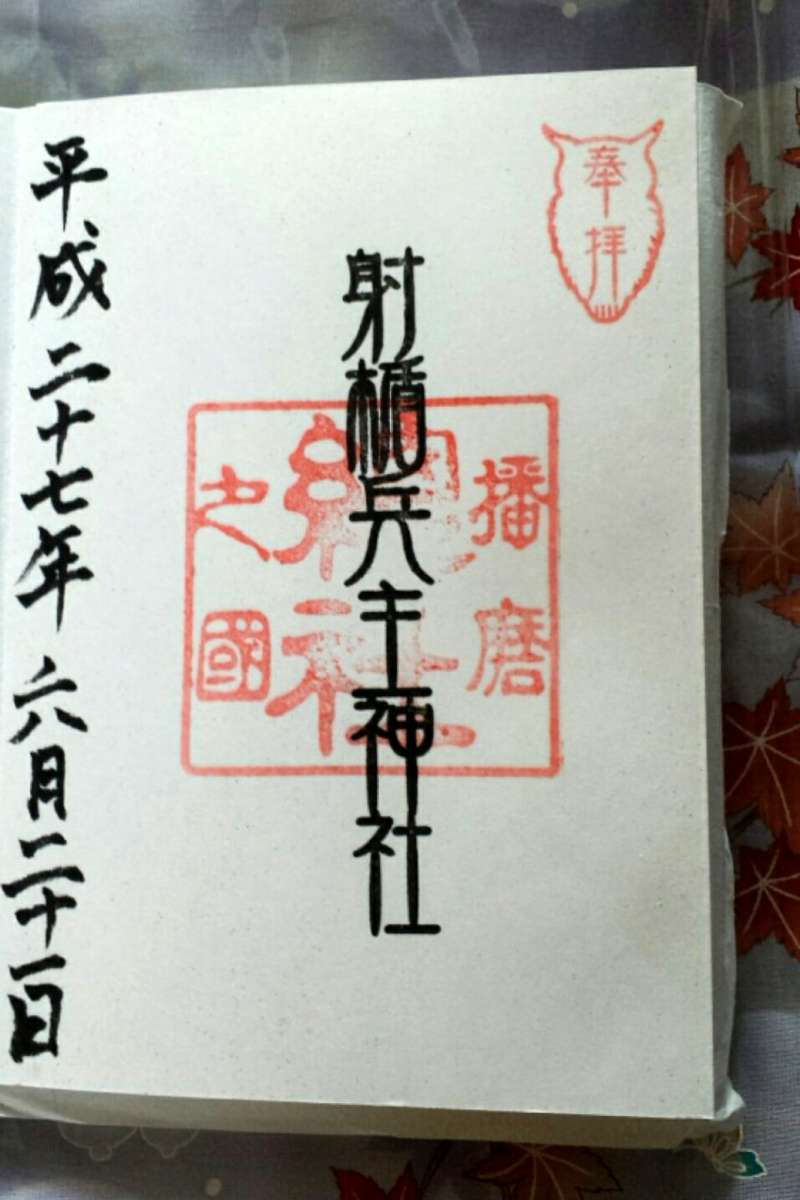 奉拝
播磨
總社
之國
射楯兵主神社
平成二十七年六月二十一日